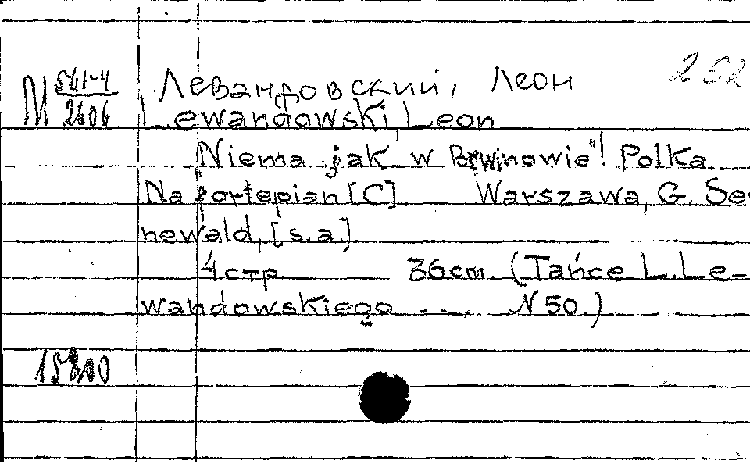 252
М 541-4/2606
Левандовский, Леон
Lewandowski, Leon
Niema jak w Brwinowie"! Polka.
Na fortepian [C] Warszawa, G. Se-
newald, [s.a.]
4 стр 36cm. (Tańce L. Le-
wandowskiego ... N 50.)